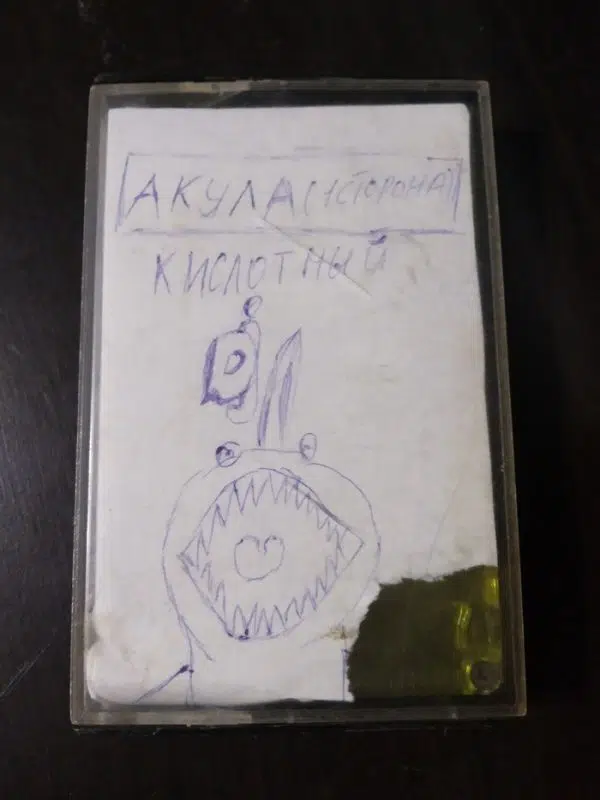 АКУЛА (1 СТОРОНА)
КИСЛОТНЫЙ